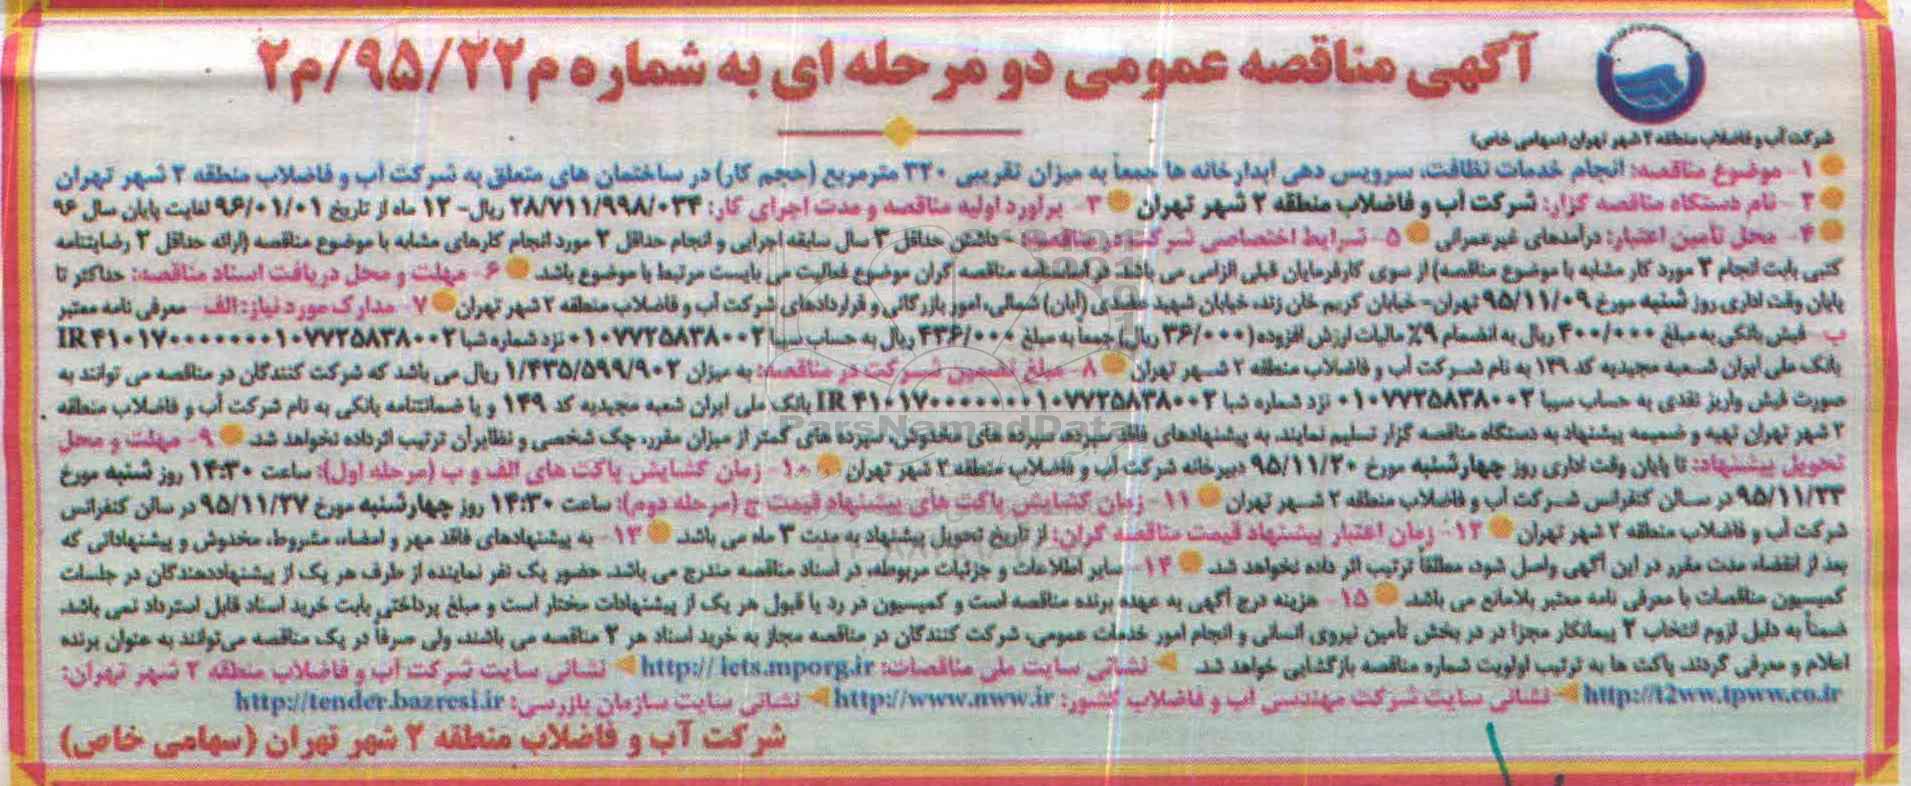 آگهی مناقصه عمومی دو مرحله ای به شماره م۹۵/۲۲/م۲
شرکت آب و فاضلاب منطقه ۲ شهر تهران (سهامی خاص)
۱- موضوع مناقصه: انجام خدمات نظافت، سرویس دهی آبدارخانه ها جمعاً به میزان تقریبی ۳۲۰ مترمربع (حجم کار) در ساختمان های متعلق به شرکت آب و فاضلاب منطقه ۲ شهر تهران
۲- نام دستگاه مناقصه گزار: شرکت آب و فاضلاب منطقه ۲ شهر تهران ۳- برآورد اولیه مناقصه و مدت اجرای کار: ۲۸/۷۱۱/۹۹۸/۰۳۴ ریال- ۱۲ ماه از تاریخ ۹۶/۰۱/۰۱ لغایت پایان سال ۹۶
۴- محل تأمین اعتبار: درآمدهای غیرعمرانی ۵- شرایط اختصاصی شرکت در مناقصه: - داشتن حداقل ۳ سال سابقه اجرایی و انجام حداقل ۲ مورد انجام کارهای مشابه با موضوع مناقصه (ارائه حداقل ۲ رضایتنامه
کتبی بابت انجام ۲ مورد کار مشابه با موضوع مناقصه) از سوی کارفرمایان قبلی الزامی می باشد. در اساسنامه مناقصه گران موضوع فعالیت می بایست مرتبط با موضوع باشد. ۶- مهلت و محل دریافت اسناد مناقصه: حداکثر تا
پایان وقت اداری روز شنبه مورخ ۹۵/۱۱/۰۹ تهران- خیابان کریم خان زند، خیابان شهید عضدی (آبان) شمالی، امور بازرگانی و قراردادهای شرکت آب و فاضلاب منطقه ۲ شهر تهران ۷- مدارک مورد نیاز: الف- معرفی نامه معتبر
ب- فیش بانکی به مبلغ ۴۰۰/۰۰۰ ریال به انضمام ۹٪ مالیات ارزش افزوده (۳۶/۰۰۰ ریال) جمعاً به مبلغ ۴۳۶/۰۰۰ ریال به حساب سیبا ۰۱۰۷۷۲۵۸۳۸۰۰۲ نزد شماره شبا IR ۴۱۰۱۷۰۰۰۰۰۰۰۰۱۰۷۷۲۵۸۳۸۰۰۲
بانک ملی ایران شعبه مجیدیه کد ۱۴۹ به نام شرکت آب و فاضلاب منطقه ۲ شهر تهران ۸- مبلغ تضمین شرکت در مناقصه: به میزان ۱/۴۳۵/۵۹۹/۹۰۲ ریال می باشد که شرکت کنندگان در مناقصه می توانند به
صورت فیش واریز نقدی به حساب سیبا ۰۱۰۷۷۲۵۸۳۸۰۰۲ نزد شماره شبا IR ۴۱۰۱۷۰۰۰۰۰۰۰۰۱۰۷۷۲۵۸۳۸۰۰۲ بانک ملی ایران شعبه مجیدیه کد ۱۴۹ و یا ضمانتنامه بانکی به نام شرکت آب و فاضلاب منطقه
۲ شهر تهران تهیه و ضمیمه پیشنهاد به دستگاه مناقصه گزار تسلیم نمایند. به پیشنهادهای فاقد سپرده، سپرده های مخدوش، سپرده های کمتر از میزان مقرر، چک شخصی و نظایر آن ترتیب اثر داده نخواهد شد. ۹- مهلت و محل
تحویل پیشنهاد: تا پایان وقت اداری روز چهارشنبه مورخ ۹۵/۱۱/۲۰ دبیرخانه شرکت آب و فاضلاب منطقه ۲ شهر تهران ۱۰- زمان گشایش پاکت های الف و ب (مرحله اول): ساعت ۱۴:۳۰ روز شنبه مورخ
۹۵/۱۱/۲۳ در سالن کنفرانس شرکت آب و فاضلاب منطقه ۲ شهر تهران ۱۱- زمان گشایش پاکت های پیشنهاد قیمت ج (مرحله دوم): ساعت ۱۴:۳۰ روز چهارشنبه مورخ ۹۵/۱۱/۲۷ در سالن کنفرانس
شرکت آب و فاضلاب منطقه ۲ شهر تهران ۱۲- زمان اعتبار پیشنهاد قیمت مناقصه گران: از تاریخ تحویل پیشنهاد به مدت ۳ ماه می باشد. ۱۳- به پیشنهادهای فاقد مهر و امضاء، مشروط، مخدوش و پیشنهاداتی که
بعد از انقضاء مدت مقرر در این آگهی واصل شود، مطلقاً ترتیب اثر داده نخواهد شد. ۱۴- سایر اطلاعات و جزئیات مربوطه، در اسناد مناقصه مندرج می باشد. حضور یک نفر نماینده از طرف هر یک از پیشنهاددهندگان در جلسات
کمیسیون مناقصات با معرفی نامه معتبر بلامانع می باشد. ۱۵- هزینه درج آگهی به عهده برنده مناقصه است و کمیسیون در رد یا قبول هر یک از پیشنهادات مختار است و مبلغ پرداختی بابت خرید اسناد قابل استرداد نمی باشد.
ضمناً به دلیل لزوم انتخاب ۲ پیمانکار مجزا در در بخش تأمین نیروی انسانی و انجام امور خدمات عمومی، شرکت کنندگان در مناقصه مجاز به خرید اسناد هر ۲ مناقصه می باشند، ولی صرفاً در یک مناقصه می‌توانند به عنوان برنده
اعلام و معرفی گردند. پاکت ها به ترتیب اولویت شماره مناقصه بازگشایی خواهد شد. نشانی سایت ملی مناقصات: http:// iets.mporg.ir نشانی سایت شرکت آب و فاضلاب منطقه ۲ شهر تهران:
http://t2ww.tpww.co.ir نشانی سایت شرکت مهندسی آب و فاضلاب کشور: http://www.nww.ir نشانی سایت سازمان بازرسی: http://tender.bazresi.ir
شرکت آب و فاضلاب منطقه ۲ شهر تهران (سهامی خاص)
ParsNamadData